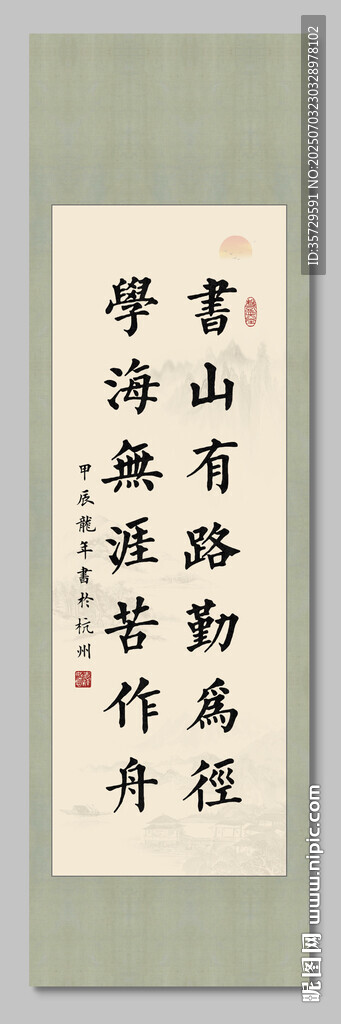 書山有路勤爲徑
學海無涯苦作舟
甲辰龍年書於杭州
ID:35729591 NO:20250703230328978102
昵图网 www.nipic.com